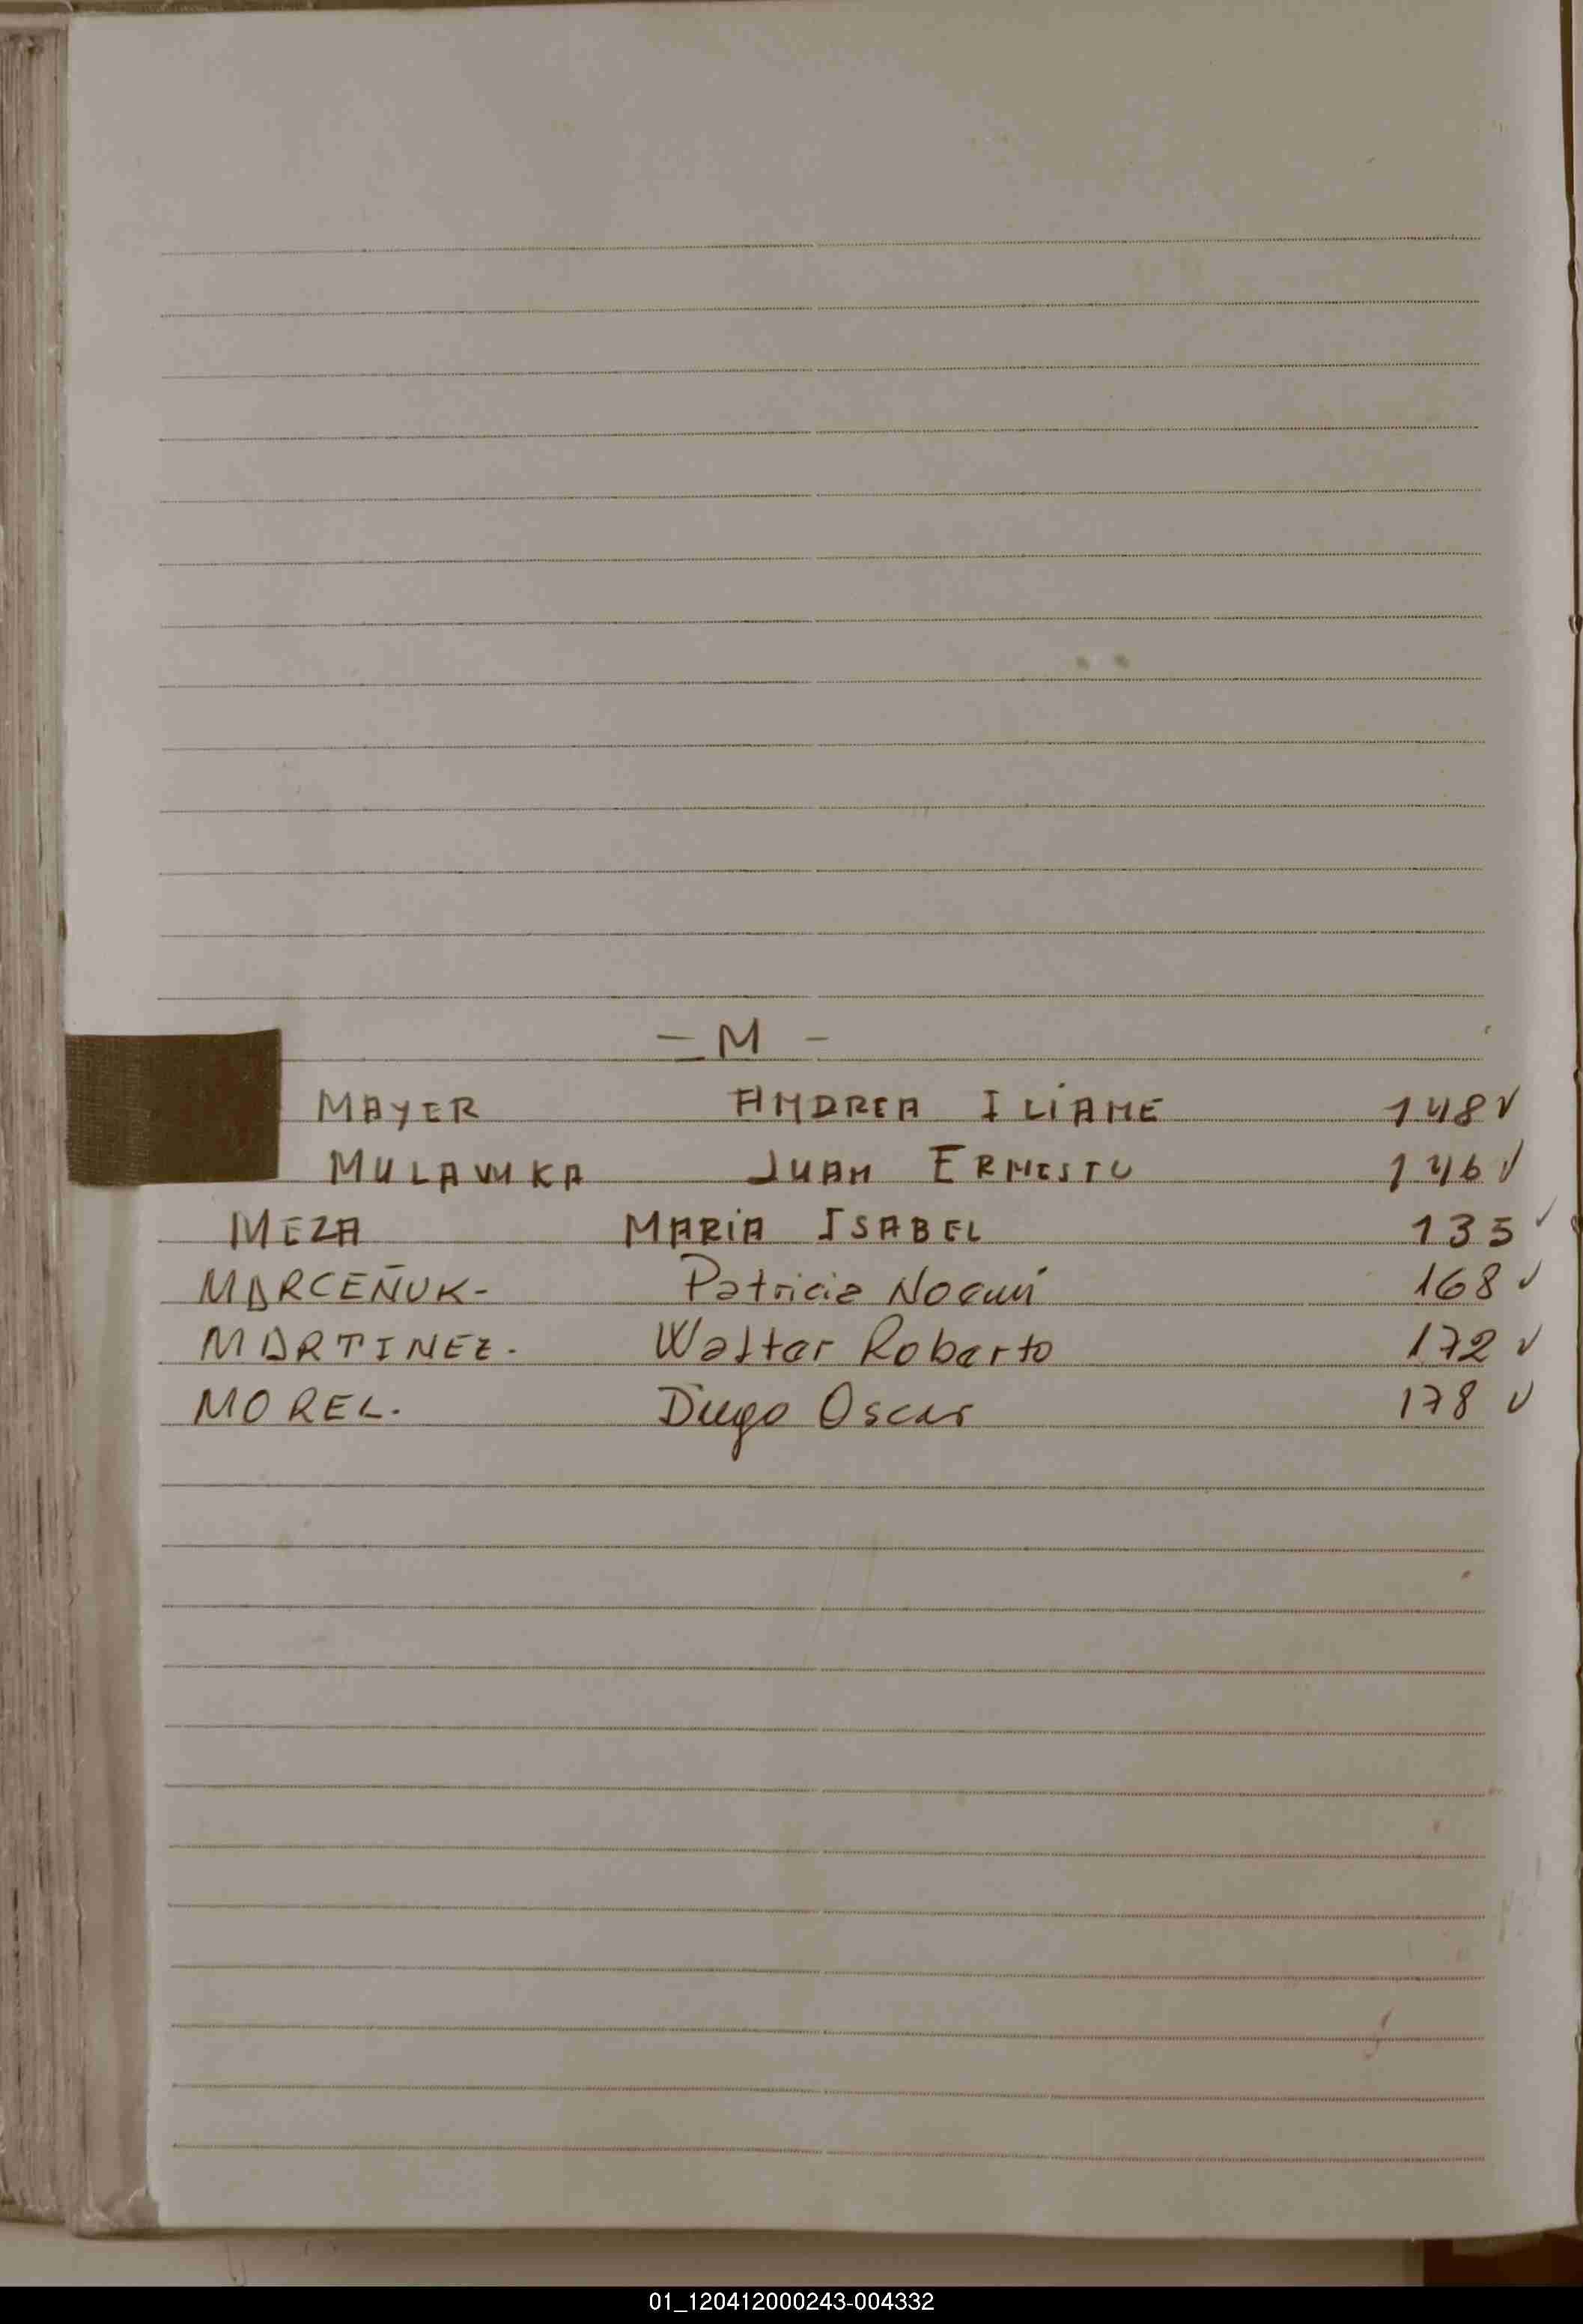 - M -
MAYER ANDREA ILIANE 148 ✓
MULAWKA JUAN ERNESTO 146 ✓
MEZA MARIA ISABEL 135 ✓
MARCEÑUK- Patricia Noemí 168 ✓
MARTINEZ. Walter Roberto 172 ✓
MOREL. Diego Oscar 178 ✓
01_120412000243-004332